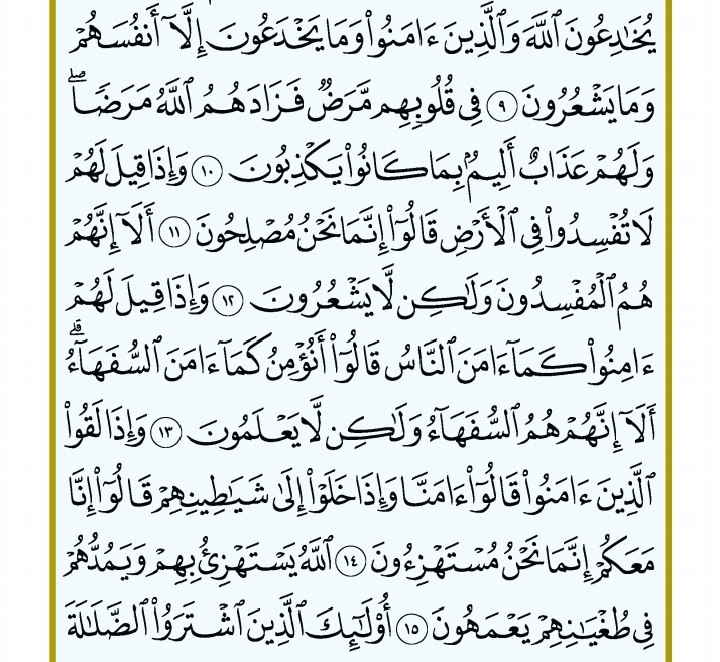 يُخَٰدِعُونَ ٱللَّهَ وَٱلَّذِينَ ءَامَنُوا۟ وَمَا يَخْدَعُونَ إِلَّآ أَنفُسَهُمْ
وَمَا يَشْعُرُونَ ٩ فِى قُلُوبِهِم مَّرَضٌ فَزَادَهُمُ ٱللَّهُ مَرَضًا ۖ
وَلَهُمْ عَذَابٌ أَلِيمٌۢ بِمَا كَانُوا۟ يَكْذِبُونَ ١٠ وَإِذَا قِيلَ لَهُمْ
لَا تُفْسِدُوا۟ فِى ٱلْأَرْضِ قَالُوٓا۟ إِنَّمَا نَحْنُ مُصْلِحُونَ ١١ أَلَآ إِنَّهُمْ
هُمُ ٱلْمُفْسِدُونَ وَلَٰكِن لَّا يَشْعُرُونَ ١٢ وَإِذَا قِيلَ لَهُمْ
ءَامِنُوا۟ كَمَآ ءَامَنَ ٱلنَّاسُ قَالُوٓا۟ أَنُؤْمِنُ كَمَآ ءَامَنَ ٱلسُّفَهَآءُ ۗ
أَلَآ إِنَّهُمْ هُمُ ٱلسُّفَهَآءُ وَلَٰكِن لَّا يَعْلَمُونَ ١٣ وَإِذَا لَقُوا۟
ٱلَّذِينَ ءَامَنُوا۟ قَالُوٓا۟ ءَامَنَّا وَإِذَا خَلَوْا۟ إِلَىٰ شَيَٰطِينِهِمْ قَالُوٓا۟ إِنَّا
مَعَكُمْ إِنَّمَا نَحْنُ مُسْتَهْزِءُونَ ١٤ ٱللَّهُ يَسْتَهْزِئُ بِهِمْ وَيَمُدُّهُمْ
فِى طُغْيَٰنِهِمْ يَعْمَهُونَ ١٥ أُو۟لَٰٓئِكَ ٱلَّذِينَ ٱشْتَرَوُا۟ ٱلضَّلَٰلَةَ